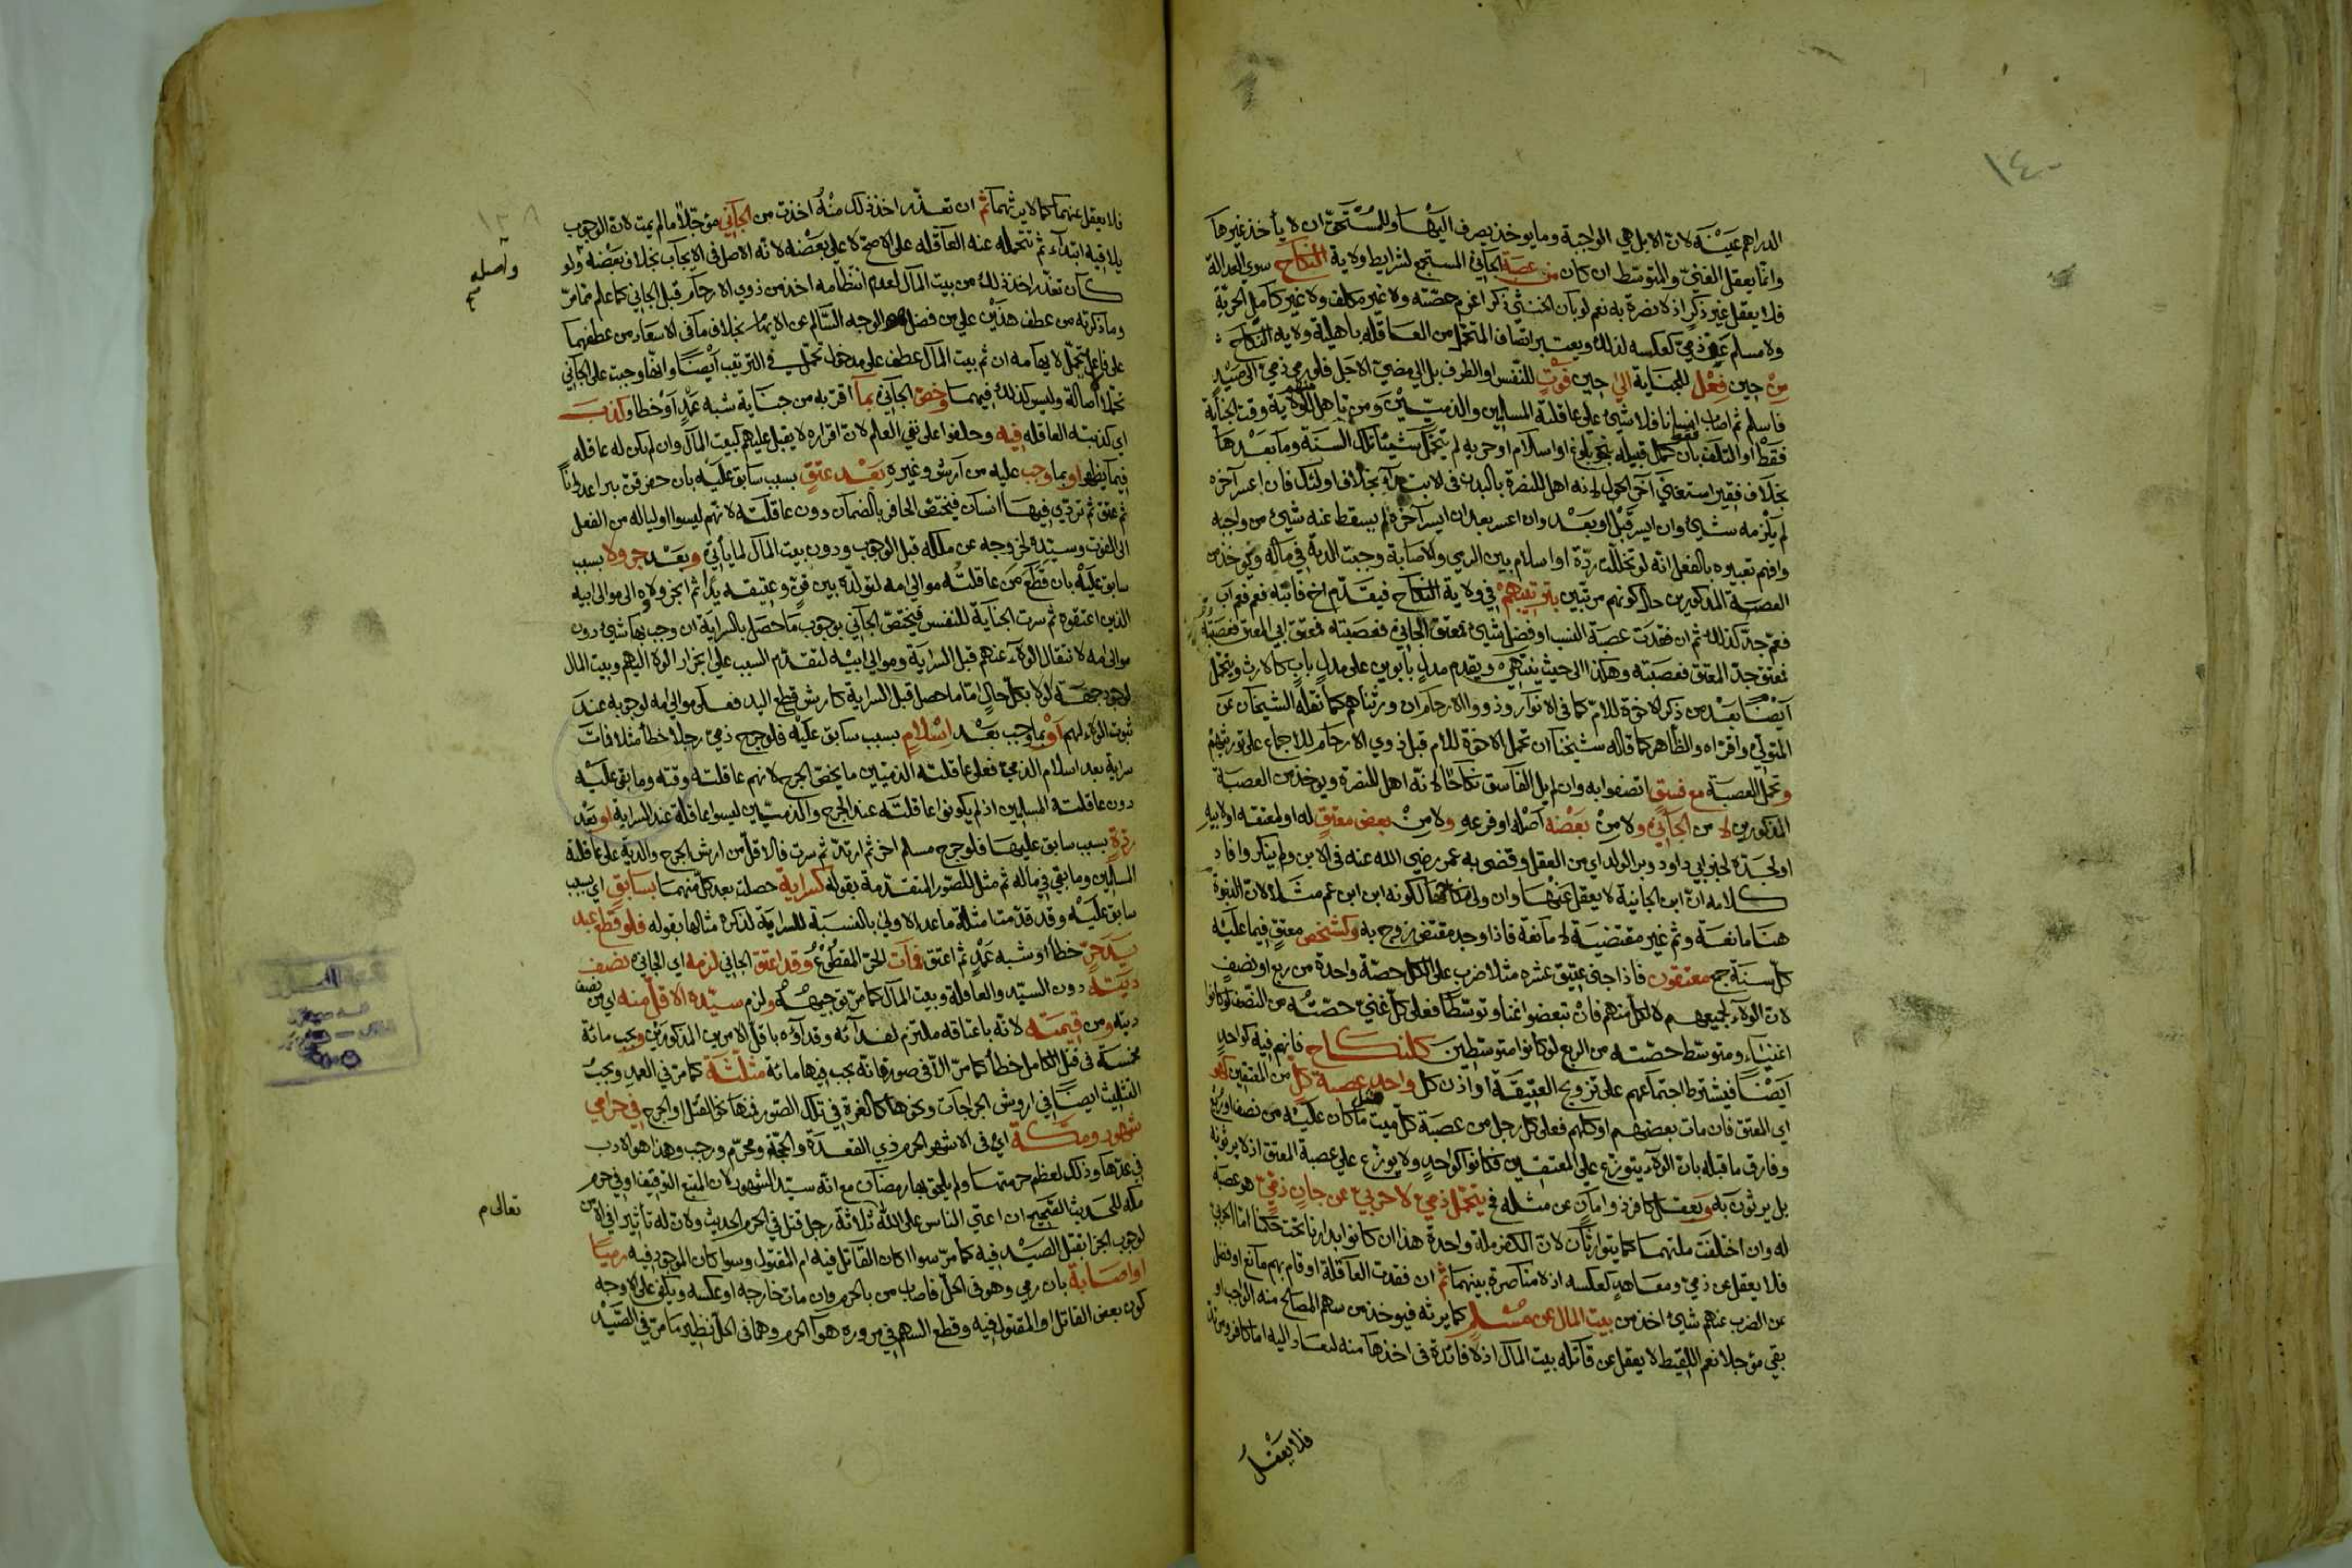 ١٤٠
الدراهم عينه لان الابل هي الواجبة وما يوخذ يصرف اليها وللمستحق ان لا يأخذ غيرها
وانما يعقل الغني والمتوسط ان كان من عصبة الجاني المستجمع لشرايط ولاية النكاح سوي العدالة
فلا يعقل غير ذكر اذ لا نصرة به نعم لو بان الخنثي ذكرا غرم حصته ولا غير مكلف ولا غير كامل الحرية
ولا مسلم عن ذمي كعكسه لذلك ويعتبر اتصاف المتحمل من العاقلة باهلية ولاية النكاح
من حين فعل للجناية الي حين فوت للنفس او الطرف بل الي مضي الاجل فلو رمي ذمي الي صيد
فاسلم ثم اصاب انسانا فلا شئ علي عاقلته المسلمين والذميين ومن تأهل للولاية وقت الجناية
فقط او التلف بان كمل قبيله بنحو بلوغ او اسلام او حرية لم يتحمل شيئا تلك السنة وما بعدها
بخلاف فقير استغني آخر الحول لانه اهل للنصرة بالبدن في الابتداء بخلاف اولئك فان اعسر آخره
لم يلزمه شئ وان ايسر قبل او بعد وان اعسر بعد ان ايسر آخره لم يسقط عنه شئ من واجبه
وافهم تعبيره بالفعل انه لو تخللت ردة او اسلام بين الرمي والاصابة وجبت الدية في ماله ويوخذ من
العصبة المذكورين حال كونهم مرتبين بترتيبهم في ولاية النكاح فيقدم اخ فابنه فعم فعم اب
فعم جد كذلك ثم ان فقدت عصبة النسب او فضل شئ فمعتق الجاني فعصبته فمعتق ابي المعتق فعصبته
فمعتق جد المعتق فعصبته وهكذا الي حيث ينتهي ويقدم مدل بأبوين علي مدل باب كالارث ويتحمل
ايضا بعد من ذكر الاخوة للام كما في الانوار وذووا الارحام ان ورثناهم كما نقله الشيخان عن
المتولي واقراه والظاهر كما قاله شيخنا ان تحمل الاخوة للام قبل ذوي الارحام للاجماع علي توريثهم
وتحمل العصبة مع فسق اتصفوا به وان لم يل الفاسق نكاحا لانه اهل للنصرة ويوخذ من العصبة
المذكورين لا من الجاني ولا من بعضه اصله او فرعه ولا من بعض معتق له او لمعتقه او لابيه
او لجده لخبر ابي داود وبرا الولد اي من العقل وقضي به عمر رضي الله عنه في الابن ولم ينكر وافاد
كلامه ان ابن الجانية لا يعقل عنها وان ولي نكاحها لكونه ابن ابن عم مثلا لان البنوة
هنا مانعة وثم غير مقتضية لا مانعة فاذا وجد مقتض زوج به وكشخص معتق فيما عليه
كل سنة جمع معتقون فاذا جني عتيق عشره مثلا ضرب علي الكل حصة واحدة من ربع او نصف
لان الولاء لجميعهم لا لكل منهم فان تبعضوا غنا وتوسطا فعلي كل غني حصته من النصف لو كانوا
اغنياء ومتوسط حصته من الربع لو كانوا متوسطين كالنكاح فانهم فيه كواحد
ايضا فيشترط اجتماعهم علي تزويج العتيقة او اذن كل واحد عصبة كل من المعتقين كهو
اي المعتق فان مات بعضهم او كلهم فعلي كل رجل من عصبة كل ميت مثل ما كان عليه من نصف او ربع
وفارق ما قبله بان الولاء يتوزع علي المعتقين فكانوا كواحد ولا يوزع علي عصبة المعتق اذ لا يرثونه
بل يرثون به ويعقل كافر ذو امان عن مثله فيتحمل ذمي لا حربي عن جان ذمي هو عصبة
له وان اختلفت ملتهما كما يتوارثان لان الكفر ملة واحدة هذا ان كانوا بدارنا تحت حكمنا اما الحربي
فلا يعقل عن ذمي ومعاهد كعكسه اذ لا مناصرة بينهما ثم ان فقدت العاقلة او قام بهم مانع او فضل
عن الضرب عنهم شئ اخذ من بيت المال عن مسلم كما يرثه فيوخذ من سهم المصالح منه الواجب او
بقي مؤجلا نعم اللقيط لا يعقل عن قاتله بيت المال اذ لا فائدة في اخذها منه لتعاد اليه اما كافر ومرتد
فلا يعقل
١٣٨
فلا يعقل عنهما كما لا يرثهما ثم ان تعذر اخذ ذلك منه اخذت من الجاني مؤجلا ما لم يمت لان الوجوب
يلاقيه ابتداء ثم تتحمله عنه العاقله علي الاصح لا علي بعضه لانه الاصل في الايجاب بخلاف بعضه ولو
كان تعذر اخذ ذلك من بيت المال لعدم انتظامه اخذ من ذوي الارحام قبل الجاني كما علم مما مر
وما ذكرته من عطف هذين علي من فضل هو الوجه السالم عن الايهام بخلاف ما في الاسعاد من عطفهما
علي فاعل تحمل لايهامه ان ثم بيت المال عطف علي مدخول تحمل في الترتيب ايضا وانها وجبت علي الجاني
تحملا اصالة وليس كذلك فيهما وخص الجاني بما اقر به من جناية شبه عمد او خطا وكذب
اي كذبته العاقلة فيه وحلفوا علي نفي العلم لان اقراره لا يقبل عليهم كبيت المال وان لم يكن له عاقلة
فيما يظهر او بما وجب عليه من ارش وغيره بعد عتق بسبب سابق عليه بان حفر قن بيرا عدوانا
ثم عتق ثم تردي فيها انسان فيختص الحافر بالضمان دون عاقلته لانهم ليسوا اولياله من الفعل
الي الفوت وسيده لخروجه عن ملكه قبل الوجوب ودون بيت المال لما ياتي وبعد جر ولا بسبب
سابق عليه بان قطع من عاقلته موالي امه لتولده بين قن وعتيقه يدا ثم انجر ولاوه الي موالي ابيه
الذين اعتقوه ثم سرت الجناية للنفس فيختص الجاني بوجوب ما حصل بالسراية ان وجب بها شئ دون
موالي امه لانتقال الولاء عنهم قبل السراية وموالي ابيه لتقدم السبب علي انجرار الولاء اليهم وبيت المال
لوجود جهة الولا بكل حال اما ما حصل قبل السراية كارش قطع اليد فعلي موالي امه لوجوبه عند
ثبوت الولاء لهم او بما وجب بعد اسلام بسبب سابق عليه فلو جرح ذمي رجلا خطأ مثلا فمات
سراية بعد اسلام الذمي فعلي عاقلته الذميين ما يخص الجرح لانهم عاقلته وقته وما بقي عليه
دون عاقلته المسلمين اذ لم يكونوا عاقلته عند الجرح والذميين ليسوا عاقلة عند السراية او بعد
ردة بسبب سابق عليها فلو جرح مسلم اخر ثم ارتد ثم سرت فالاقل من ارش الجرح والدية علي عاقلته
المسلمين وما بقي في ماله ثم مثل للصور المتقدمة بقوله كسراية حصلت بعد كل منهما بسابق اي بسبب
سابق عليه وقد قدمنا مثلة ما عدا الاولي بالنسبة للسراية لذكره مثالها بقوله فلو قطع عبد
يد حر خطأ او شبه عمد ثم اعتق فمات الحر المقطوع وقد اعتق الجاني لزمه اي الجاني نصف
ديته دون السيد والعاقلة وبيت المال كما مر توجيهه ولزم سيده الاقل منه اي من نصف
ديته ومن قيمته لانه باعتاقه ملتزم لفدائه وفداؤه باقل الامرين المذكورين وجب مائة
مخمسة في قتل الكامل خطأ كما مر الا في صور فانه يجب فيها مائة مثلثة كما مر في العمد ويجب
التثليث ايضا في اروش الجراحات ونحوها كالغرة في تلك الصور فمنها نحو القتل او الجرح في حرامي
شهور ومكة اي في الاشهر الحرم ذي القعدة والحجة ومحرم ورجب وهذا هو الادب
في عدها وذلك لعظم حرمتها ولم يلحق بها رمضان مع انه سيد الشهور لان المتبع التوقيف او في حرم
مكة للحديث الصحيح ان اعتي الناس علي الله ثلاثة رجل قتل في الحرم الحديث ولان له تأثيرا في الامن
لوجوب الجزا بقتل الصيد فيه كما مر سوا كان القاتل فيه ام المقتول وسوا كان الموجود فيه رميا
او اصابة بان رمي وهو في الحل فاصاب من بالحرم وان مات خارجه او عكسه ويكفي علي الاوجه
كون بعض القاتل او المقتول فيه وقطع السهم في مروره هوآ الحرم وهما في الحل نظير ما مر في الصيد
واصله
تعالي م